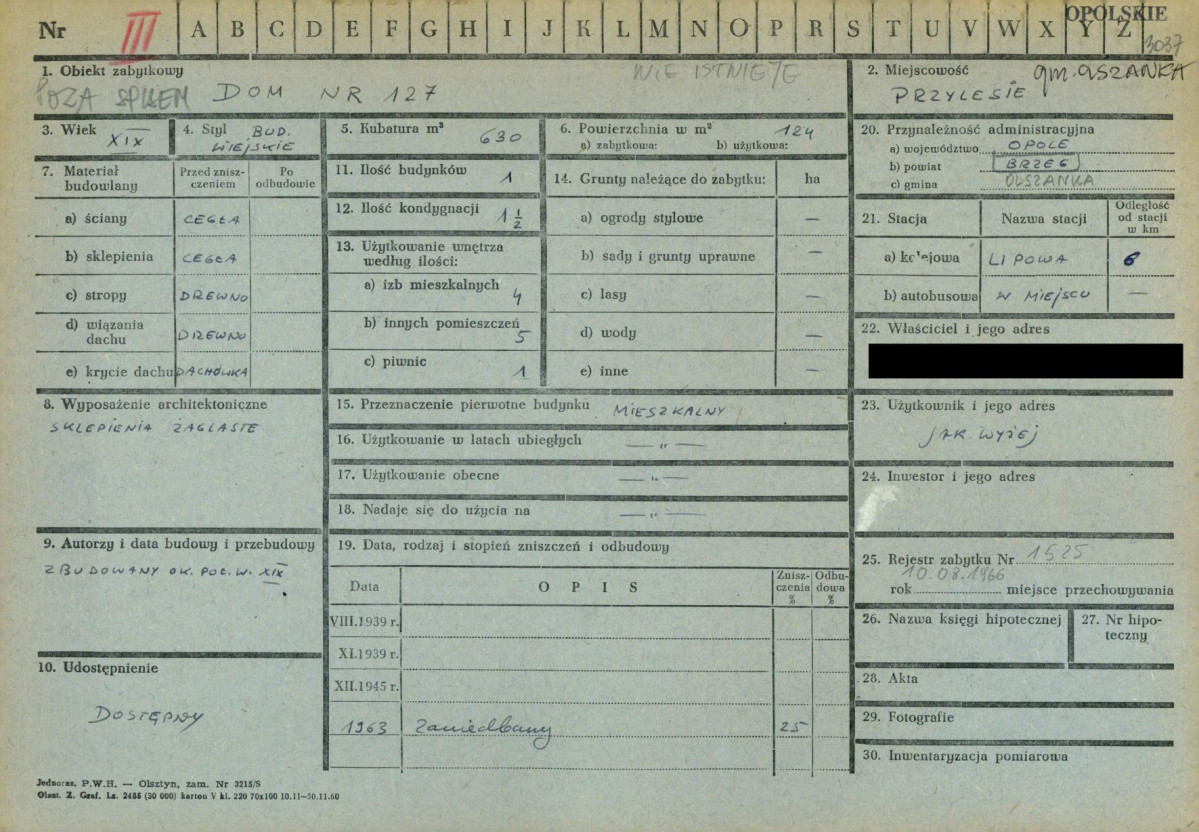 Nr III A B C D E F G H I J K L M N O P R S T U V W X Y Z
OPOLSKIE
3037
1. Obiekt zabytkowy
NIE ISTNIEJE
POZA SPISEM DOM NR 127
2. Miejscowość gm. OLSZANKA
PRZYLESIE
3. Wiek
XIX
4. Styl BUD.
WIEJSKIE
5. Kubatura m³ 630
6. Powierzchnia w m² 124
a) zabytkowa: b) użytkowa:
20. Przynależność administracyjna
a) województwo OPOLE
b) powiat BRZEG
c) gmina OLSZANKA
7. Materiał budowlany
Przed zniszczeniem
Po odbudowie
a) ściany CEGŁA
b) sklepienia CEGŁA
c) stropy DREWNO
d) wiązania dachu DREWNO
e) krycie dachu DACHÓWKA
11. Ilość budynków 1
12. Ilość kondygnacji 1 1/2
13. Użytkowanie wnętrza
według ilości:
a) izb mieszkalnych 4
b) innych pomieszczeń 5
c) piwnic 1
14. Grunty należące do zabytku: ha
a) ogrody stylowe —
b) sady i grunty uprawne —
c) lasy —
d) wody —
e) inne —
21. Stacja
Nazwa stacji
Odległość
od stacji
w km
a) kolejowa LIPOWA 6
b) autobusowa W MIEJSCU —
22. Właściciel i jego adres
8. Wyposażenie architektoniczne
SKLEPIENIA ŻAGLASTE
15. Przeznaczenie pierwotne budynku MIESZKALNY
16. Użytkowanie w latach ubiegłych — „ —
17. Użytkowanie obecne — „ —
18. Nadaje się do użycia na — „ —
23. Użytkownik i jego adres
JAK WYŻEJ
24. Inwestor i jego adres
9. Autorzy i data budowy i przebudowy
ZBUDOWANY OK. POŁ. W. XIX
19. Data, rodzaj i stopień zniszczeń i odbudowy
Data
O P I S
Zniszczenia
%
Odbudowa
%
VIII.1939 r.
XI.1939 r.
XII.1945 r.
1963 zaniedbany 25
25. Rejestr zabytku Nr 1525
10.08.1966
rok miejsce przechowywania
26. Nazwa księgi hipotecznej
27. Nr hipoteczny
28. Akta
29. Fotografie
30. Inwentaryzacja pomiarowa
10. Udostępnienie
DOSTĘPNY
Jednoraz. P.W.H. — Olsztyn, zam. Nr 3215/S
Olszt. Z. Graf. Lz. 2485 (30 000) karton V kl. 220 70x100 10.11—30.11.60